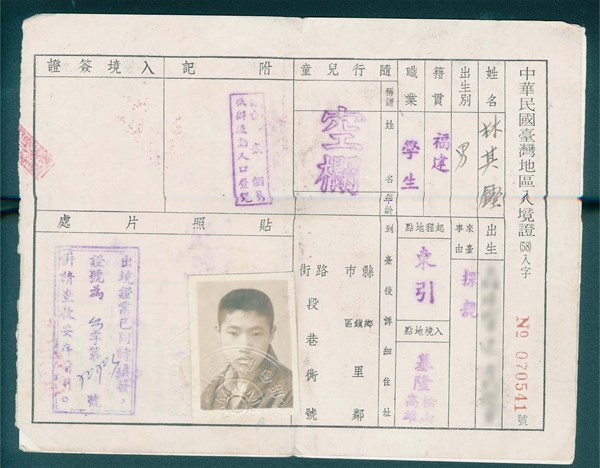 中華民國臺灣地區入境證
(58)入字
No 070541 號
姓名
林其鏗
出生
出生別
男
來臺事由
探親
籍貫
福建
職業
學生
起程地點
東引
入境地點
基隆 松山
高雄
隨行兒童
稱謂
姓名
年齡
空欄
到臺後詳細住址
縣市
鄉鎮區
里
鄰
路街
段
巷
衖
號
附記
入境簽證
貼照片處
出境證業已同時繳發，
證號為
字第
號